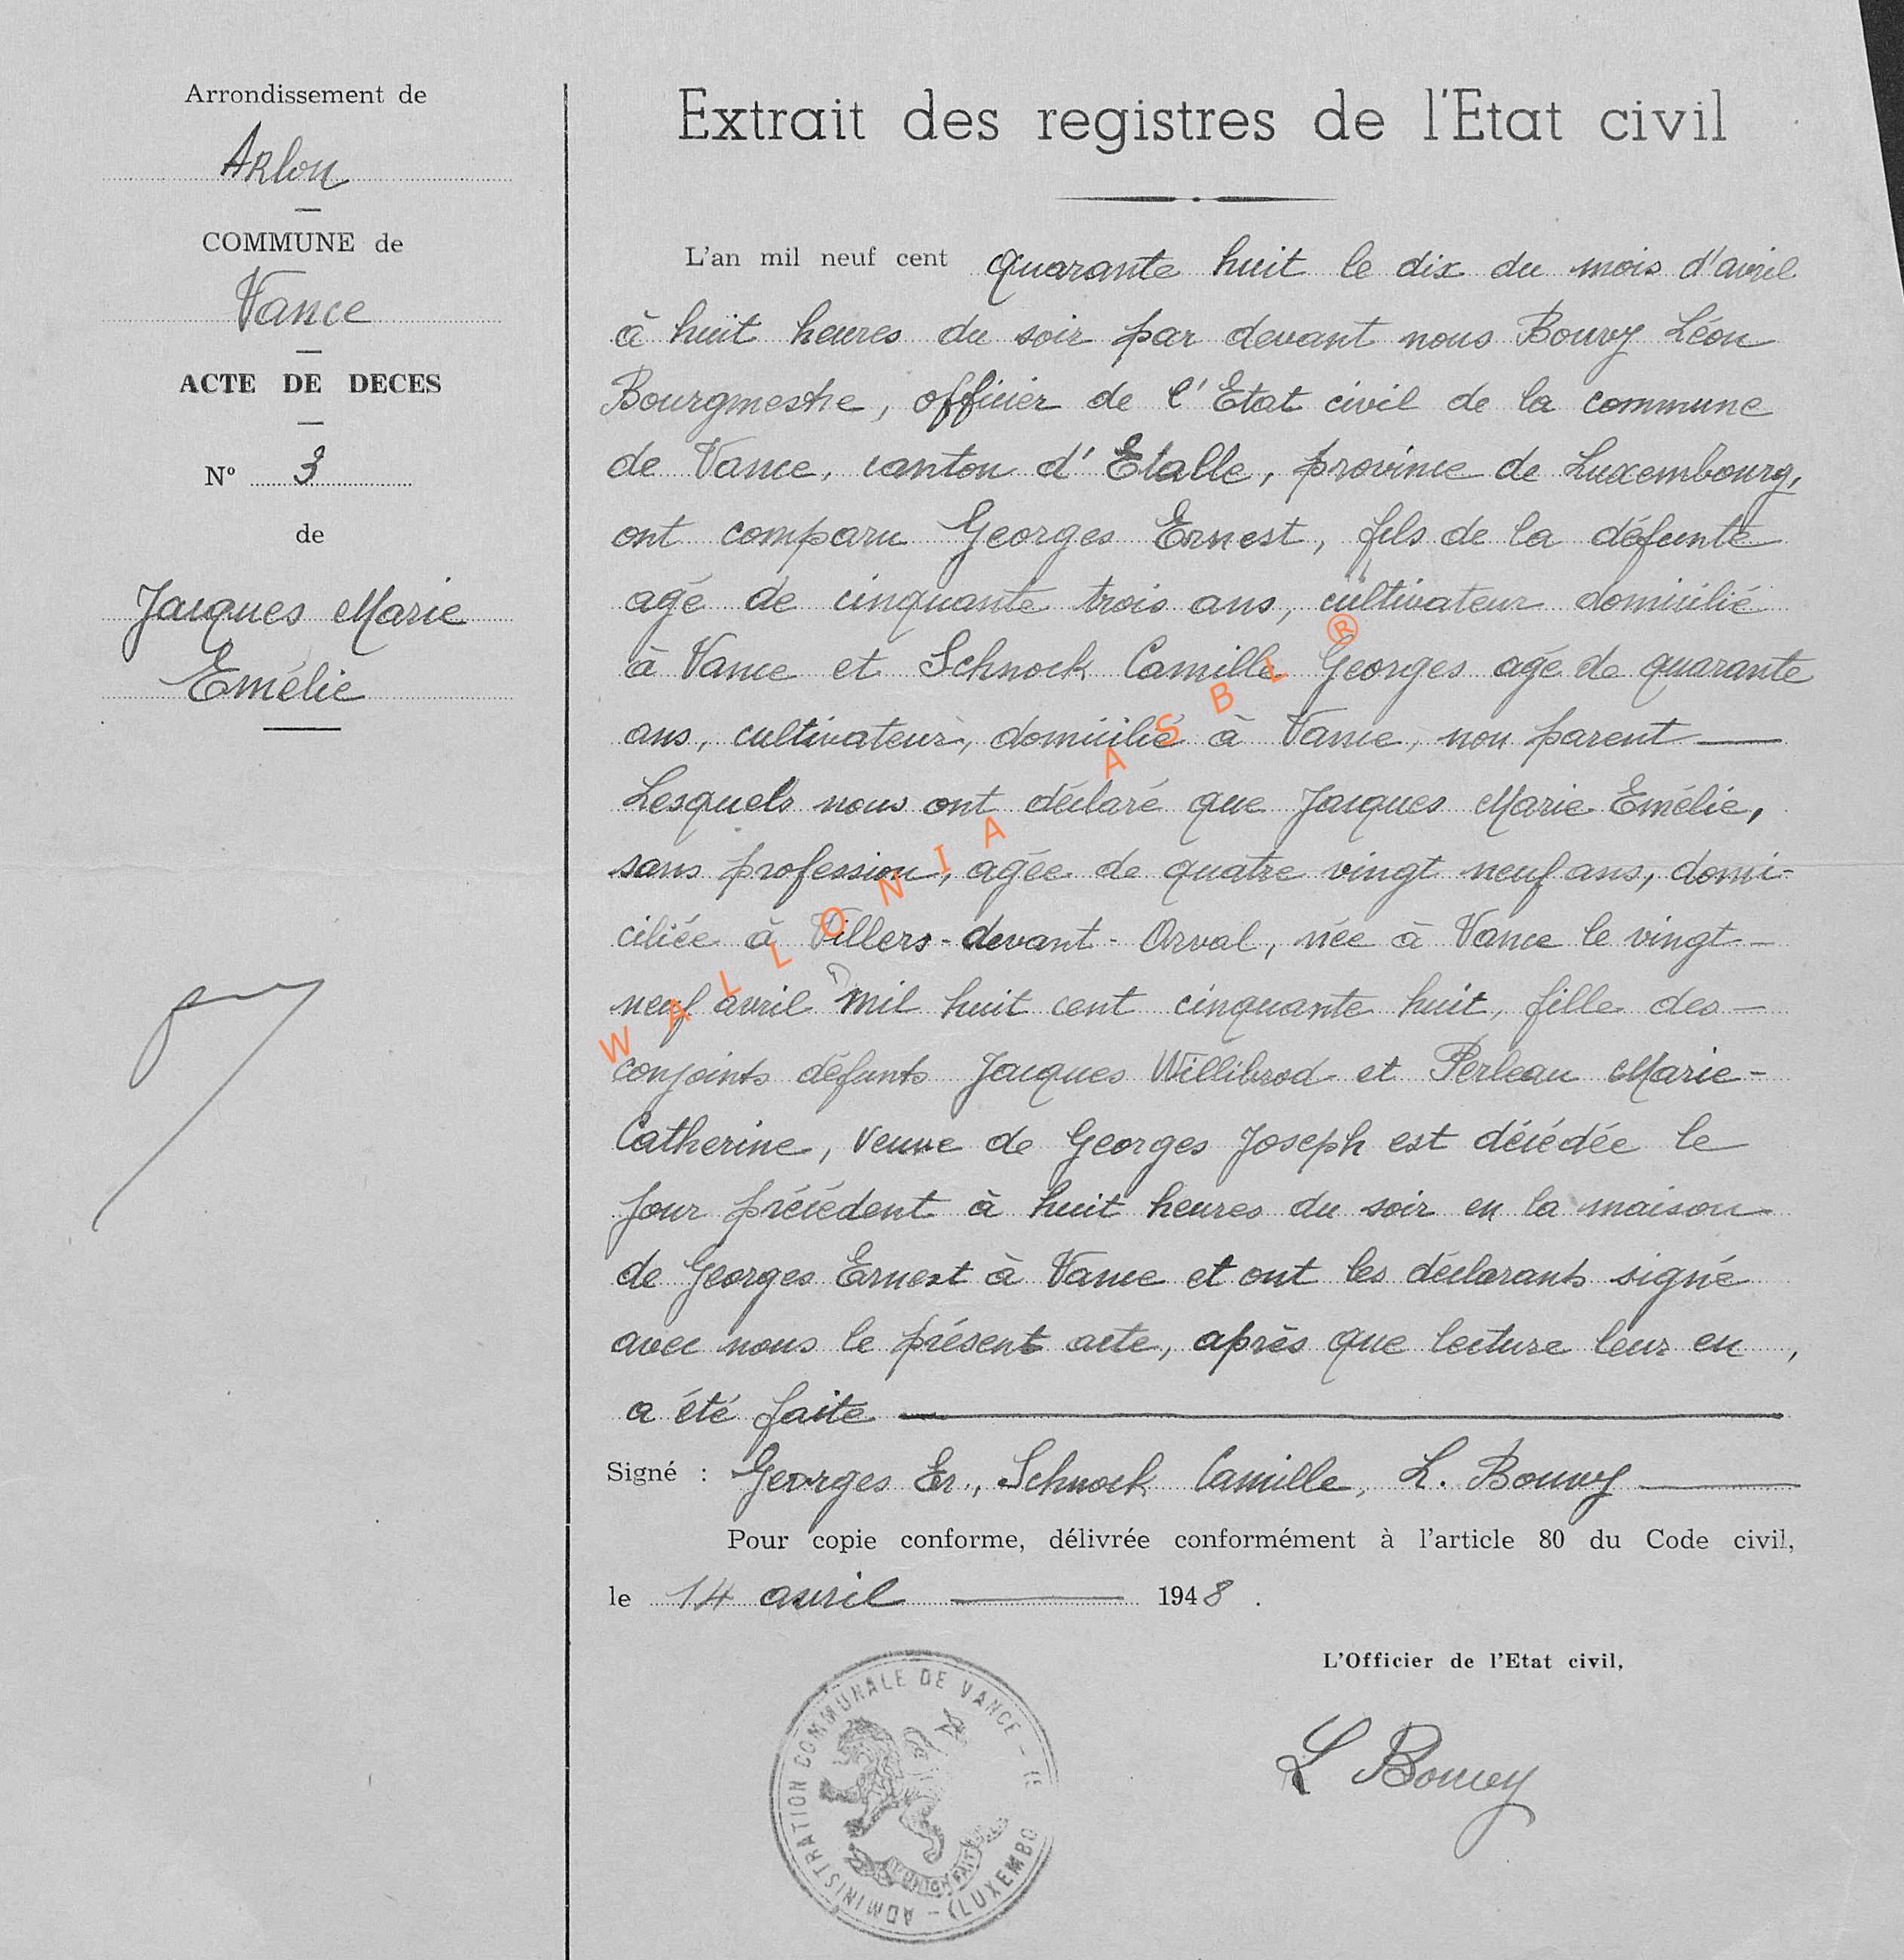 Arrondissement de
Arlon
COMMUNE de
Vance
ACTE DE DECES
N° 3
de
Jacques Marie
Emélie
Extrait des registres de l'Etat civil
L'an mil neuf cent quarante huit le dix du mois d'avril
à huit heures du soir par devant nous Bouvy Léon
Bourgmestre, officier de l'Etat civil de la commune
de Vance, canton d'Etalle, province de Luxembourg,
ont comparu Georges Ernest, fils de la défunte
agé de cinquante trois ans, cultivateur domicilié
à Vance et Schnock Camille Georges agé de quarante
ans, cultivateur, domicilié à Vance, non parent
Lesquels nous ont déclaré que Jacques Marie Emélie,
sans profession, agée de quatre vingt neuf ans, domi-
ciliée à Villers-devant-Orval, née à Vance le vingt-
neuf avril mil huit cent cinquante huit, fille des
conjoints défunts Jacques Willibrod et Perleau Marie-
Catherine, veuve de Georges Joseph est décédée le
jour précédent à huit heures du soir en la maison
de Georges Ernest à Vance et ont les déclarants signé
avec nous le présent acte, après que lecture leur en
a été faite
Signé : Georges Er., Schnock Camille, L. Bouvy
Pour copie conforme, délivrée conformément à l'article 80 du Code civil,
le 14 avril 1948.
L'Officier de l'Etat civil,
L Bouvy
ADMINISTRATION COMMUNALE DE VANCE - (LUXEMBO
L'UNION FAIT
WALLONIA ASBL ®